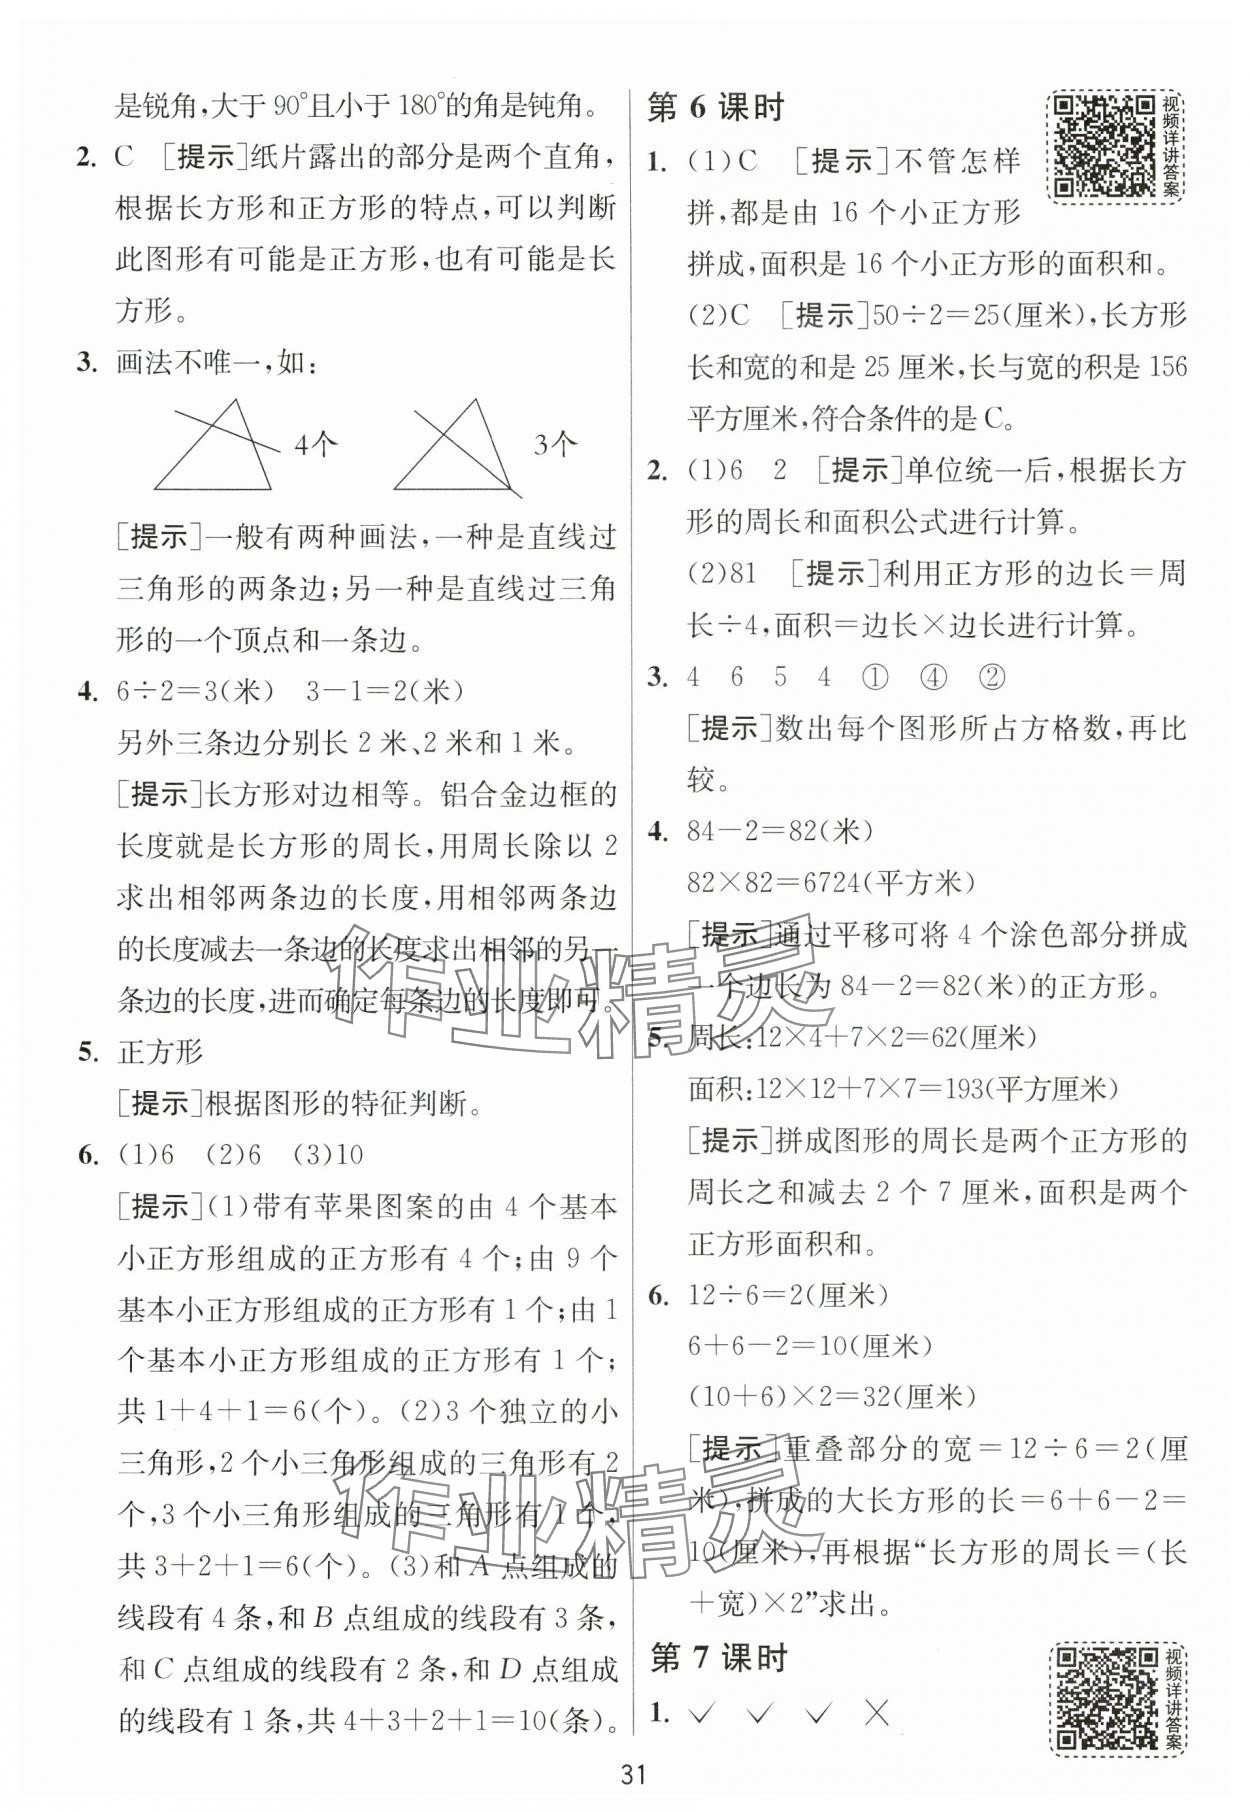 是锐角,大于90°且小于180°的角是钝角。
2. C [提示]纸片露出的部分是两个直角,
根据长方形和正方形的特点,可以判断
此图形有可能是正方形,也有可能是长
方形。
3. 画法不唯一,如:
4个 3个
[提示]一般有两种画法,一种是直线过
三角形的两条边;另一种是直线过三角
形的一个顶点和一条边。
4. 6÷2=3(米) 3-1=2(米)
另外三条边分别长2米、2米和1米。
[提示]长方形对边相等。铝合金边框的
长度就是长方形的周长,用周长除以2
求出相邻两条边的长度,用相邻两条边
的长度减去一条边的长度求出相邻的另一
条边的长度,进而确定每条边的长度即可。
5. 正方形
[提示]根据图形的特征判断。
6. (1)6 (2)6 (3)10
[提示](1)带有苹果图案的由4个基本
小正方形组成的正方形有4个;由9个
基本小正方形组成的正方形有1个;由1
个基本小正方形组成的正方形有1个;
共1+4+1=6(个)。(2)3个独立的小
三角形,2个小三角形组成的三角形有2
个,3个小三角形组成的三角形有1个,
共3+2+1=6(个)。(3)和A点组成的
线段有4条,和B点组成的线段有3条,
和C点组成的线段有2条,和D点组成
的线段有1条,共4+3+2+1=10(条)。
第6课时
视频详讲答案
1. (1)C [提示]不管怎样
拼,都是由16个小正方形
拼成,面积是16个小正方形的面积和。
(2)C [提示]50÷2=25(厘米),长方形
长和宽的和是25厘米,长与宽的积是156
平方厘米,符合条件的是C。
2. (1)6 2 [提示]单位统一后,根据长方
形的周长和面积公式进行计算。
(2)81 [提示]利用正方形的边长=周
长÷4,面积=边长×边长进行计算。
3. 4 6 5 4 ① ④ ②
[提示]数出每个图形所占方格数,再比
较。
4. 84-2=82(米)
82×82=6724(平方米)
[提示]通过平移可将4个涂色部分拼成
一个边长为84-2=82(米)的正方形。
5. 周长:12×4+7×2=62(厘米)
面积:12×12+7×7=193(平方厘米)
[提示]拼成图形的周长是两个正方形的
周长之和减去2个7厘米,面积是两个
正方形面积和。
6. 12÷6=2(厘米)
6+6-2=10(厘米)
(10+6)×2=32(厘米)
[提示]重叠部分的宽=12÷6=2(厘
米),拼成的大长方形的长=6+6-2=
10(厘米),再根据“长方形的周长=(长
+宽)×2”求出。
第7课时
视频详讲答案
1. ✓ ✓ ✓ ×
31
作业精灵
作业精灵